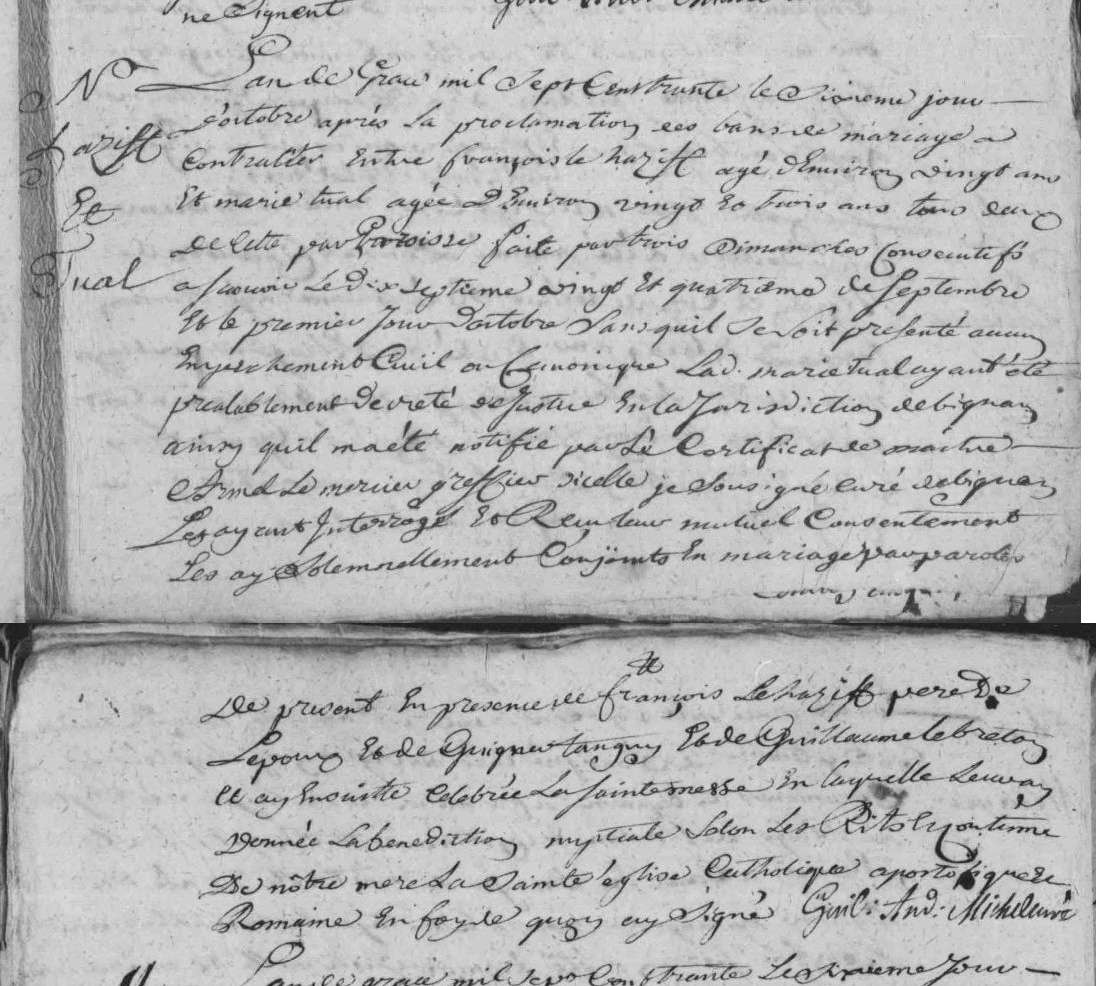 ne Signent
N
haziff
Et
Tual
Lan de Grace mil Sept Cent trante le Sixieme jour
d'octobre aprés la proclamation des bans de mariage a
Contracter Entre françois le haziff agé d'Environ vingt ans
Et marie tual agée d'Environ vingt Et trois ans tous deux
de Cette par Paroisse faite par trois Dimanches Consecutifs
a scavoir le dix septieme vingt Et quatrieme de Septembre
Et le premier Jour d'octobre Sans quil Se Soit presenté aucun
Empeschement Civil ou Canonique Lad. marie tual ayant été
prealablement decreté de Justice En la Jurisdiction de bignan
ainsy quil ma été notifié par Le Certificat de maitre
Armel Le mercier greffier dicelle je Sousigné curé de bignan
Les ayant Interrogé Et Receu leur mutuel Consentement
Les ay Solemnellement Conjoints En mariage par paroles
De present En presence de françois Le haziff pere De
Lepoux Et de Guigner tanguy Et de Guillaume le breton
Et ay Ensuitte Celebrée La Sainte messe En laquelle Leur ay
Donnée La benediction nuptiale Selon Les Rits Et Coutume
De nôtre mere La Sainte église Catholique apostolique Et
Romaine En foy de quoy ay Signé Guil: And: Michel curé
Lan de grace mil Sept Cent trante Le Sixieme Jour